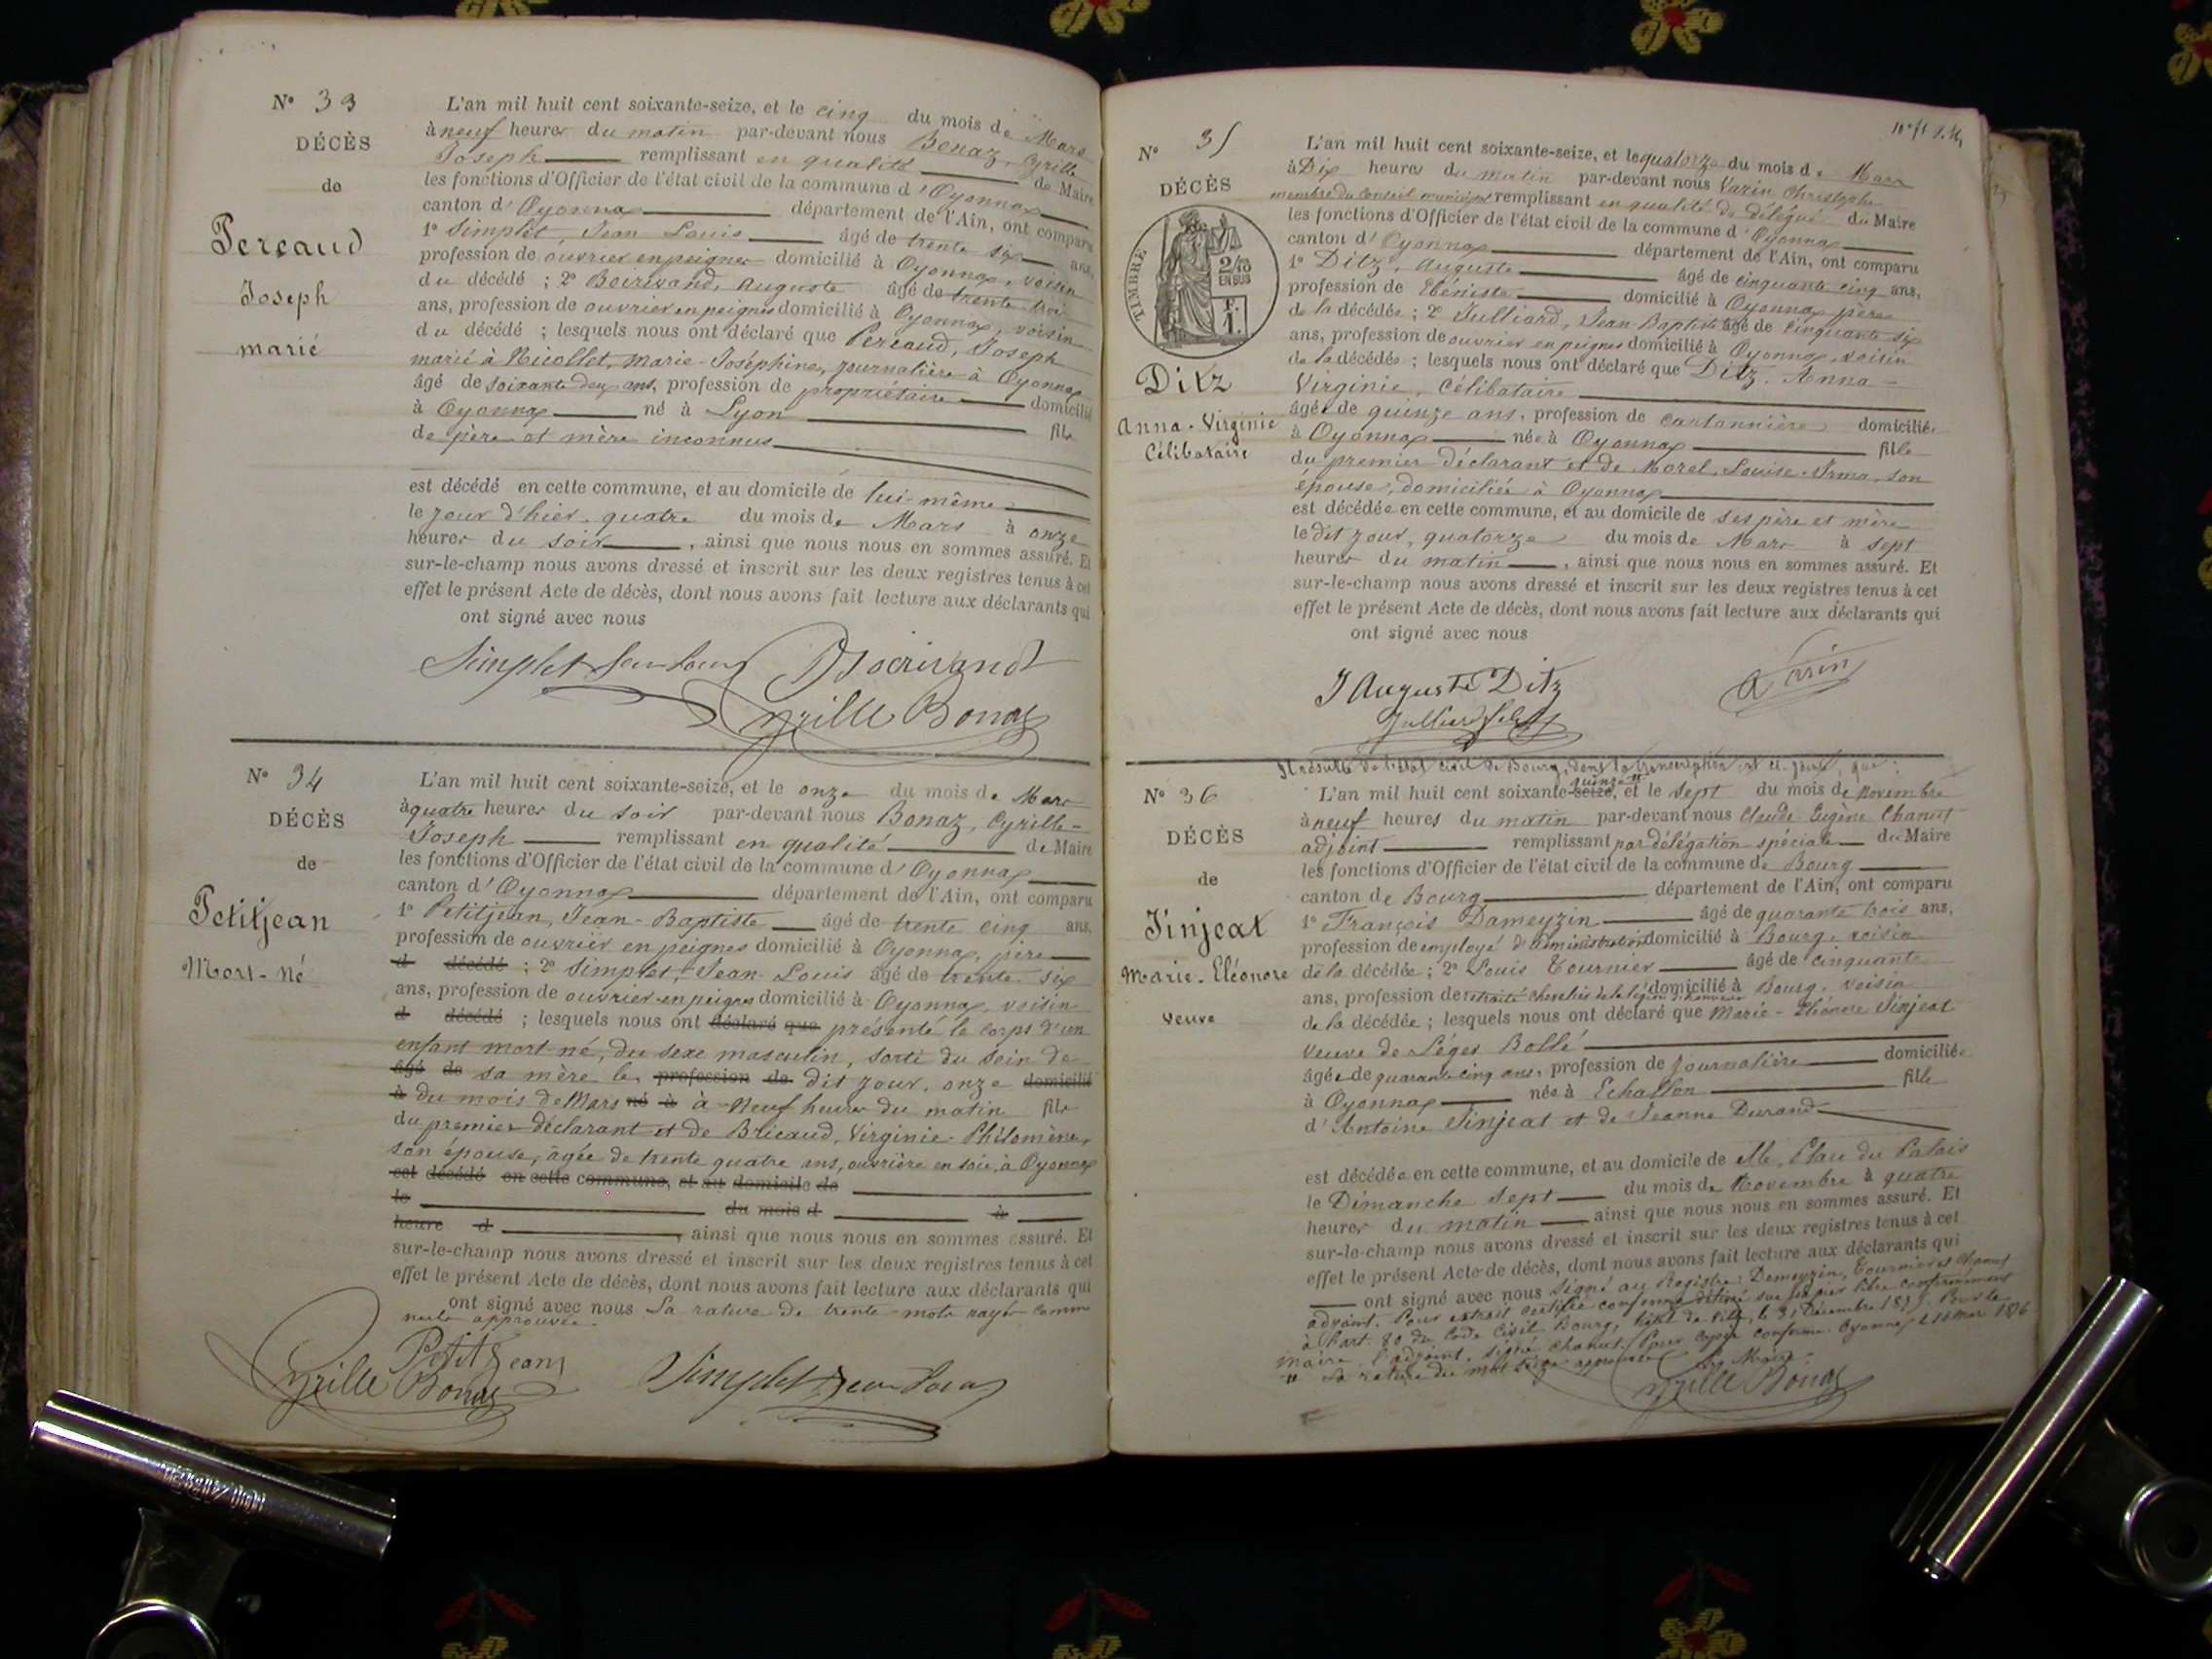 N° 33
DÉCÈS
de
Perçaud
Joseph
marié
L'an mil huit cent soixante-seize, et le cinq du mois de Mars
à neuf heures du matin par-devant nous Bonaz, Cyrille
Joseph remplissant en qualité de Maire
les fonctions d'Officier de l'état civil de la commune d'Oyonnax
canton d'Oyonnax département de l'Ain, ont comparu
1° Simplet, Jean Louis âgé de trente six ans,
profession de ouvrier en peignes domicilié à Oyonnax, voisin
du décédé ; 2° Auguste âgé de trente trois
ans, profession de ouvrier en peignes domicilié à Oyonnax, voisin
du décédé ; lesquels nous ont déclaré que Perçaud, Joseph
marié à Nicollet, Marie-Joséphine, journalière à Oyonnax
âgé de soixante deux ans, profession de propriétaire domicilié
à Oyonnax né à Lyon fils
de père et mère inconnus
est décédé en cette commune, et au domicile de lui-même
le jour d'hier, quatre du mois de Mars à onze
heures du soir, ainsi que nous nous en sommes assuré. Et
sur-le-champ nous avons dressé et inscrit sur les deux registres tenus à cet
effet le présent Acte de décès, dont nous avons fait lecture aux déclarants qui
ont signé avec nous
Simplet Jean Louis
Cyrille Bonaz
N° 34
DÉCÈS
de
Petitjean
Mort-né
L'an mil huit cent soixante-seize, et le onze du mois de Mars
à quatre heures du soir par-devant nous Bonaz, Cyrille-
Joseph remplissant en qualité de Maire
les fonctions d'Officier de l'état civil de la commune d'Oyonnax
canton d'Oyonnax département de l'Ain, ont comparu
1° Petitjean, Jean-Baptiste âgé de trente cinq ans,
profession de ouvrier en peignes domicilié à Oyonnax, père
d décédé ; 2° Simplet, Jean-Louis âgé de trente six
ans, profession de ouvrier en peignes domicilié à Oyonnax, voisin
d décédé ; lesquels nous ont déclaré que présenté le corps d'un
enfant mort-né, du sexe masculin, sorti du sein de
âgé de sa mère le profession de dit jour, onze domicilié
à du mois de Mars né à à Neuf heures du matin fils
du premier déclarant et de Bricaud, Virginie-Philomène,
son épouse, âgée de trente quatre ans, ouvrière en soie, à Oyonnax
est décédé en cette commune, et au domicile de
le du mois d à
heure d, ainsi que nous nous en sommes assuré. Et
sur-le-champ nous avons dressé et inscrit sur les deux registres tenus à cet
effet le présent Acte de décès, dont nous avons fait lecture aux déclarants qui
ont signé avec nous La rature de trente mots rayés comme
nuls approuvée.
Petitjean
Cyrille Bonaz Simplet Jean Louis
N° 35
DÉCÈS
TIMBRE
2/10
EN SUS
F.
1.
Ditz
Anna-Virginie
Célibataire
L'an mil huit cent soixante-seize, et le quatorze du mois de Mars
à Dix heures du matin par-devant nous Varin Christophe
membre du Conseil municipal remplissant en qualité de délégué du Maire
les fonctions d'Officier de l'état civil de la commune d'Oyonnax
canton d'Oyonnax département de l'Ain, ont comparu
1° Ditz, Auguste âgé de cinquante cinq ans,
profession de Ébéniste domicilié à Oyonnax père
de la décédée ; 2° Julliard, Jean-Baptiste âgé de cinquante six
ans, profession de ouvrier en peignes domicilié à Oyonnax, voisin
de la décédée ; lesquels nous ont déclaré que Ditz, Anna-
Virginie, Célibataire
âgée de quinze ans, profession de cartonnière domiciliée
à Oyonnax née à Oyonnax fille
du premier déclarant et de Morel, Louise-Irma, son
épouse, domiciliée à Oyonnax
est décédée en cette commune, et au domicile de ses père et mère
le dit jour, quatorze du mois de Mars à sept
heures du matin, ainsi que nous nous en sommes assuré. Et
sur-le-champ nous avons dressé et inscrit sur les deux registres tenus à cet
effet le présent Acte de décès, dont nous avons fait lecture aux déclarants qui
ont signé avec nous
J Auguste Ditz Varin
N° 36
DÉCÈS
de
Sinjeat
Marie-Eléonore
veuve
Il résulte de l'état civil de Bourg, dont la transcription est ci-jointe, que :
quinze
L'an mil huit cent soixante-seize, et le sept du mois de Novembre
à neuf heures du matin par-devant nous Claude Eugène Chanut
adjoint remplissant par délégation spéciale du Maire
les fonctions d'Officier de l'état civil de la commune de Bourg
canton de Bourg département de l'Ain, ont comparu
1° François Dameyzin âgé de quarante trois ans,
profession de employé d'administration domicilié à Bourg, voisin
de la décédée ; 2° Louis Tournier âgé de cinquante
ans, profession de retraité chevalier de la légion d'honneur domicilié à Bourg, voisin
de la décédée ; lesquels nous ont déclaré que Marie-Eléonore Sinjeat
veuve de Léger Bollé
âgée de quarante cinq ans, profession de journalière domiciliée
à Oyonnax née à Echallon fille
d'Antoine Sinjeat et de Jeanne Durand
est décédée en cette commune, et au domicile de elle, Place du Palais
le Dimanche sept du mois de Novembre à quatre
heures du matin ainsi que nous nous en sommes assuré. Et
sur-le-champ nous avons dressé et inscrit sur les deux registres tenus à cet
effet le présent Acte de décès, dont nous avons fait lecture aux déclarants qui
ont signé avec nous Signé au Registre: Dameyzin, Tournier et Chanut
adjoint. Pour extrait certifié conforme délivré sur papier libre conformément
à l'art. 80 du Code Civil. Bourg, hôtel de ville, le 31 Décembre 1875. Pour le
maire, l'adjoint, signé Chanut. Pour copie conforme. Oyonnax, mars 1876
La rature du mot seize approuvée Le Maire
Cyrille Bonaz